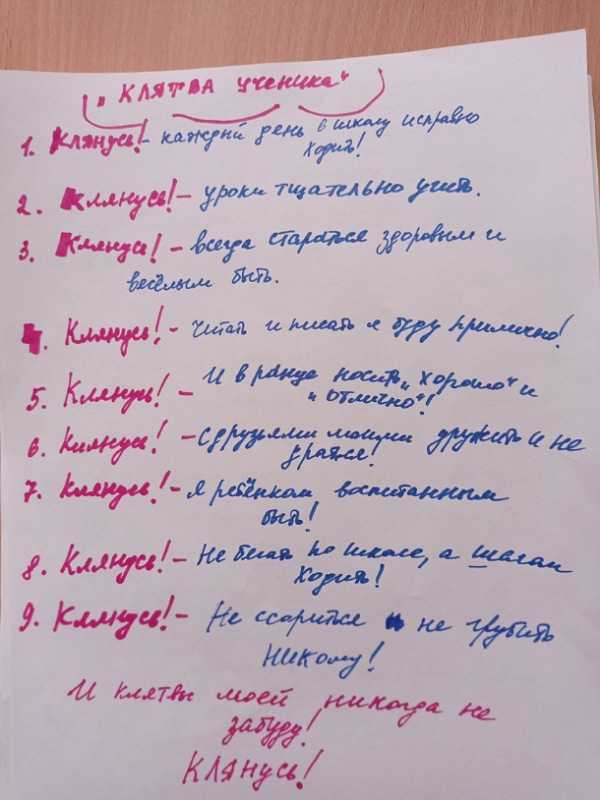 „КЛЯТВА ученика“
1. Клянусь! – каждый день в школу исправно
ходить!
2. Клянусь! – уроки тщательно учить.
3. Клянусь! – всегда стараться здоровым и
весёлым быть.
4. Клянусь! – Читать и писать я буду прилично!
5. Клянусь! – И в ранце носить „хорошо“ и
„отлично“!
6. Клянусь! – С друзьями моими дружить и не
драться!
7. Клянусь! – Я ребёнком воспитанным
быть!
8. Клянусь! – Не бегать по школе, а шагом
ходить!
9. Клянусь! – Не ссориться и не грубить
никому!
И клятвы моей никогда не
забуду!
КЛЯНУСЬ!